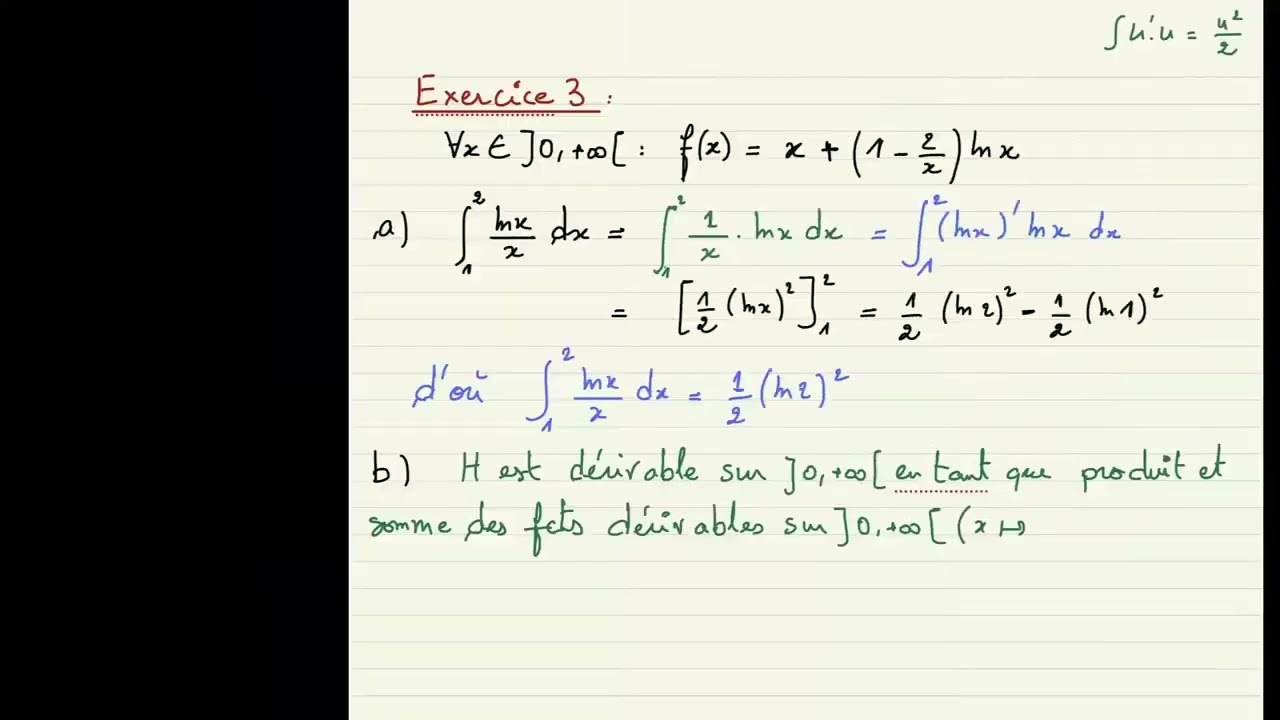 ∫u'.u = u²/2
Exercice 3 :
∀x ∈ ]0,+∞[ : f(x) = x + (1 - 2/x) ln x
a) ∫₁² lnx/x dx = ∫₁² 1/x . lnx dx = ∫₁² (lnx)' lnx dx
= [1/2 (lnx)²]₁² = 1/2 (ln2)² - 1/2 (ln1)²
d'où ∫₁² lnx/x dx = 1/2 (ln2)²
b) H est dérivable sur ]0,+∞[ en tant que produit et
somme des fcts dérivables sur ]0,+∞[ (x ↦